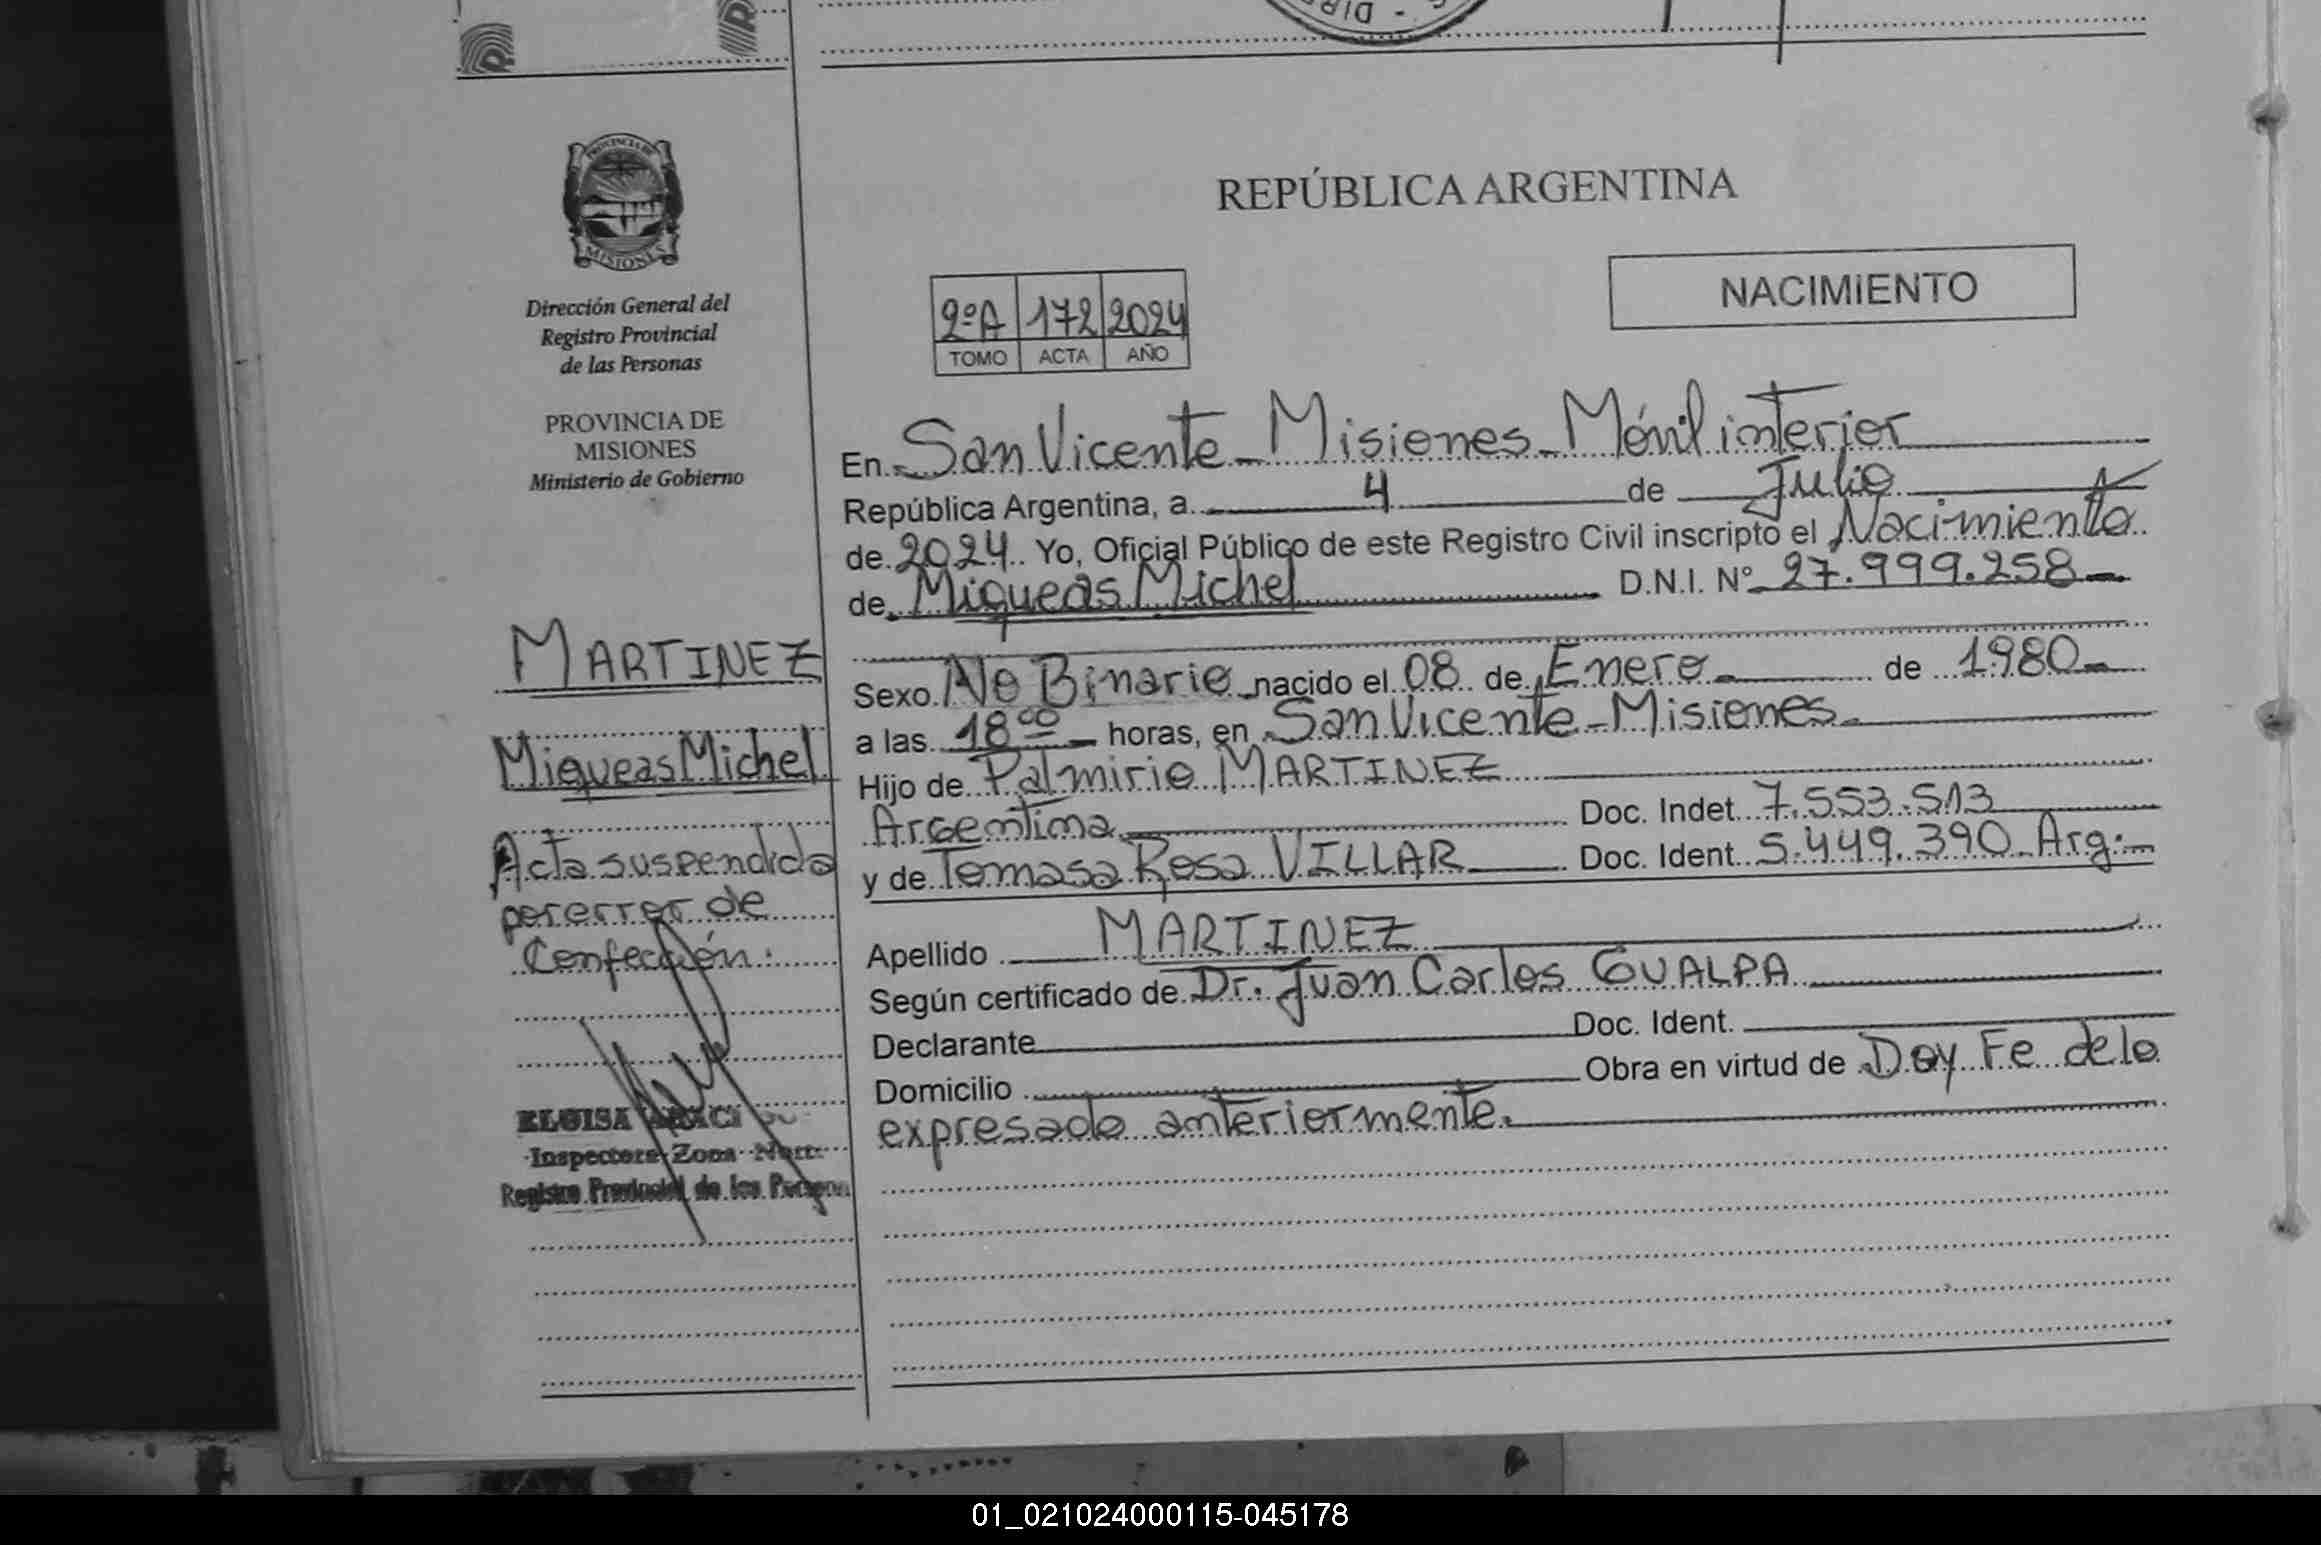 PROVINCIA DE
MISIONES
Dirección General del
Registro Provincial
de las Personas
PROVINCIA DE
MISIONES
Ministerio de Gobierno
MARTINEZ
Miqueas Michel
Acta suspendida
por error de
Confección.
ELOISA
Inspectora Zona Norte
Registro Provincial de las Personas
REPÚBLICA ARGENTINA
NACIMIENTO
2ºA 172 2024
TOMO ACTA AÑO
En San Vicente - Misiones - Móvil interior
República Argentina, a 4 de Julio
de 2024 Yo, Oficial Público de este Registro Civil inscripto el Nacimiento
de Miqueas Michel D.N.I. Nº 27.999.258
Sexo No Binario nacido el 08 de Enero de 1980
a las 18 00 horas, en San Vicente - Misiones
Hijo de Palmirio MARTINEZ
Argentina Doc. Indet. 7.553.513
y de Tomasa Rosa VILLAR Doc. Ident. 5.449.390 Arg.
Apellido MARTINEZ
Según certificado de Dr. Juan Carlos GUALPA
Declarante Doc. Ident.
Domicilio Obra en virtud de Doy Fe de lo
expresado anteriormente.
01_021024000115-045178